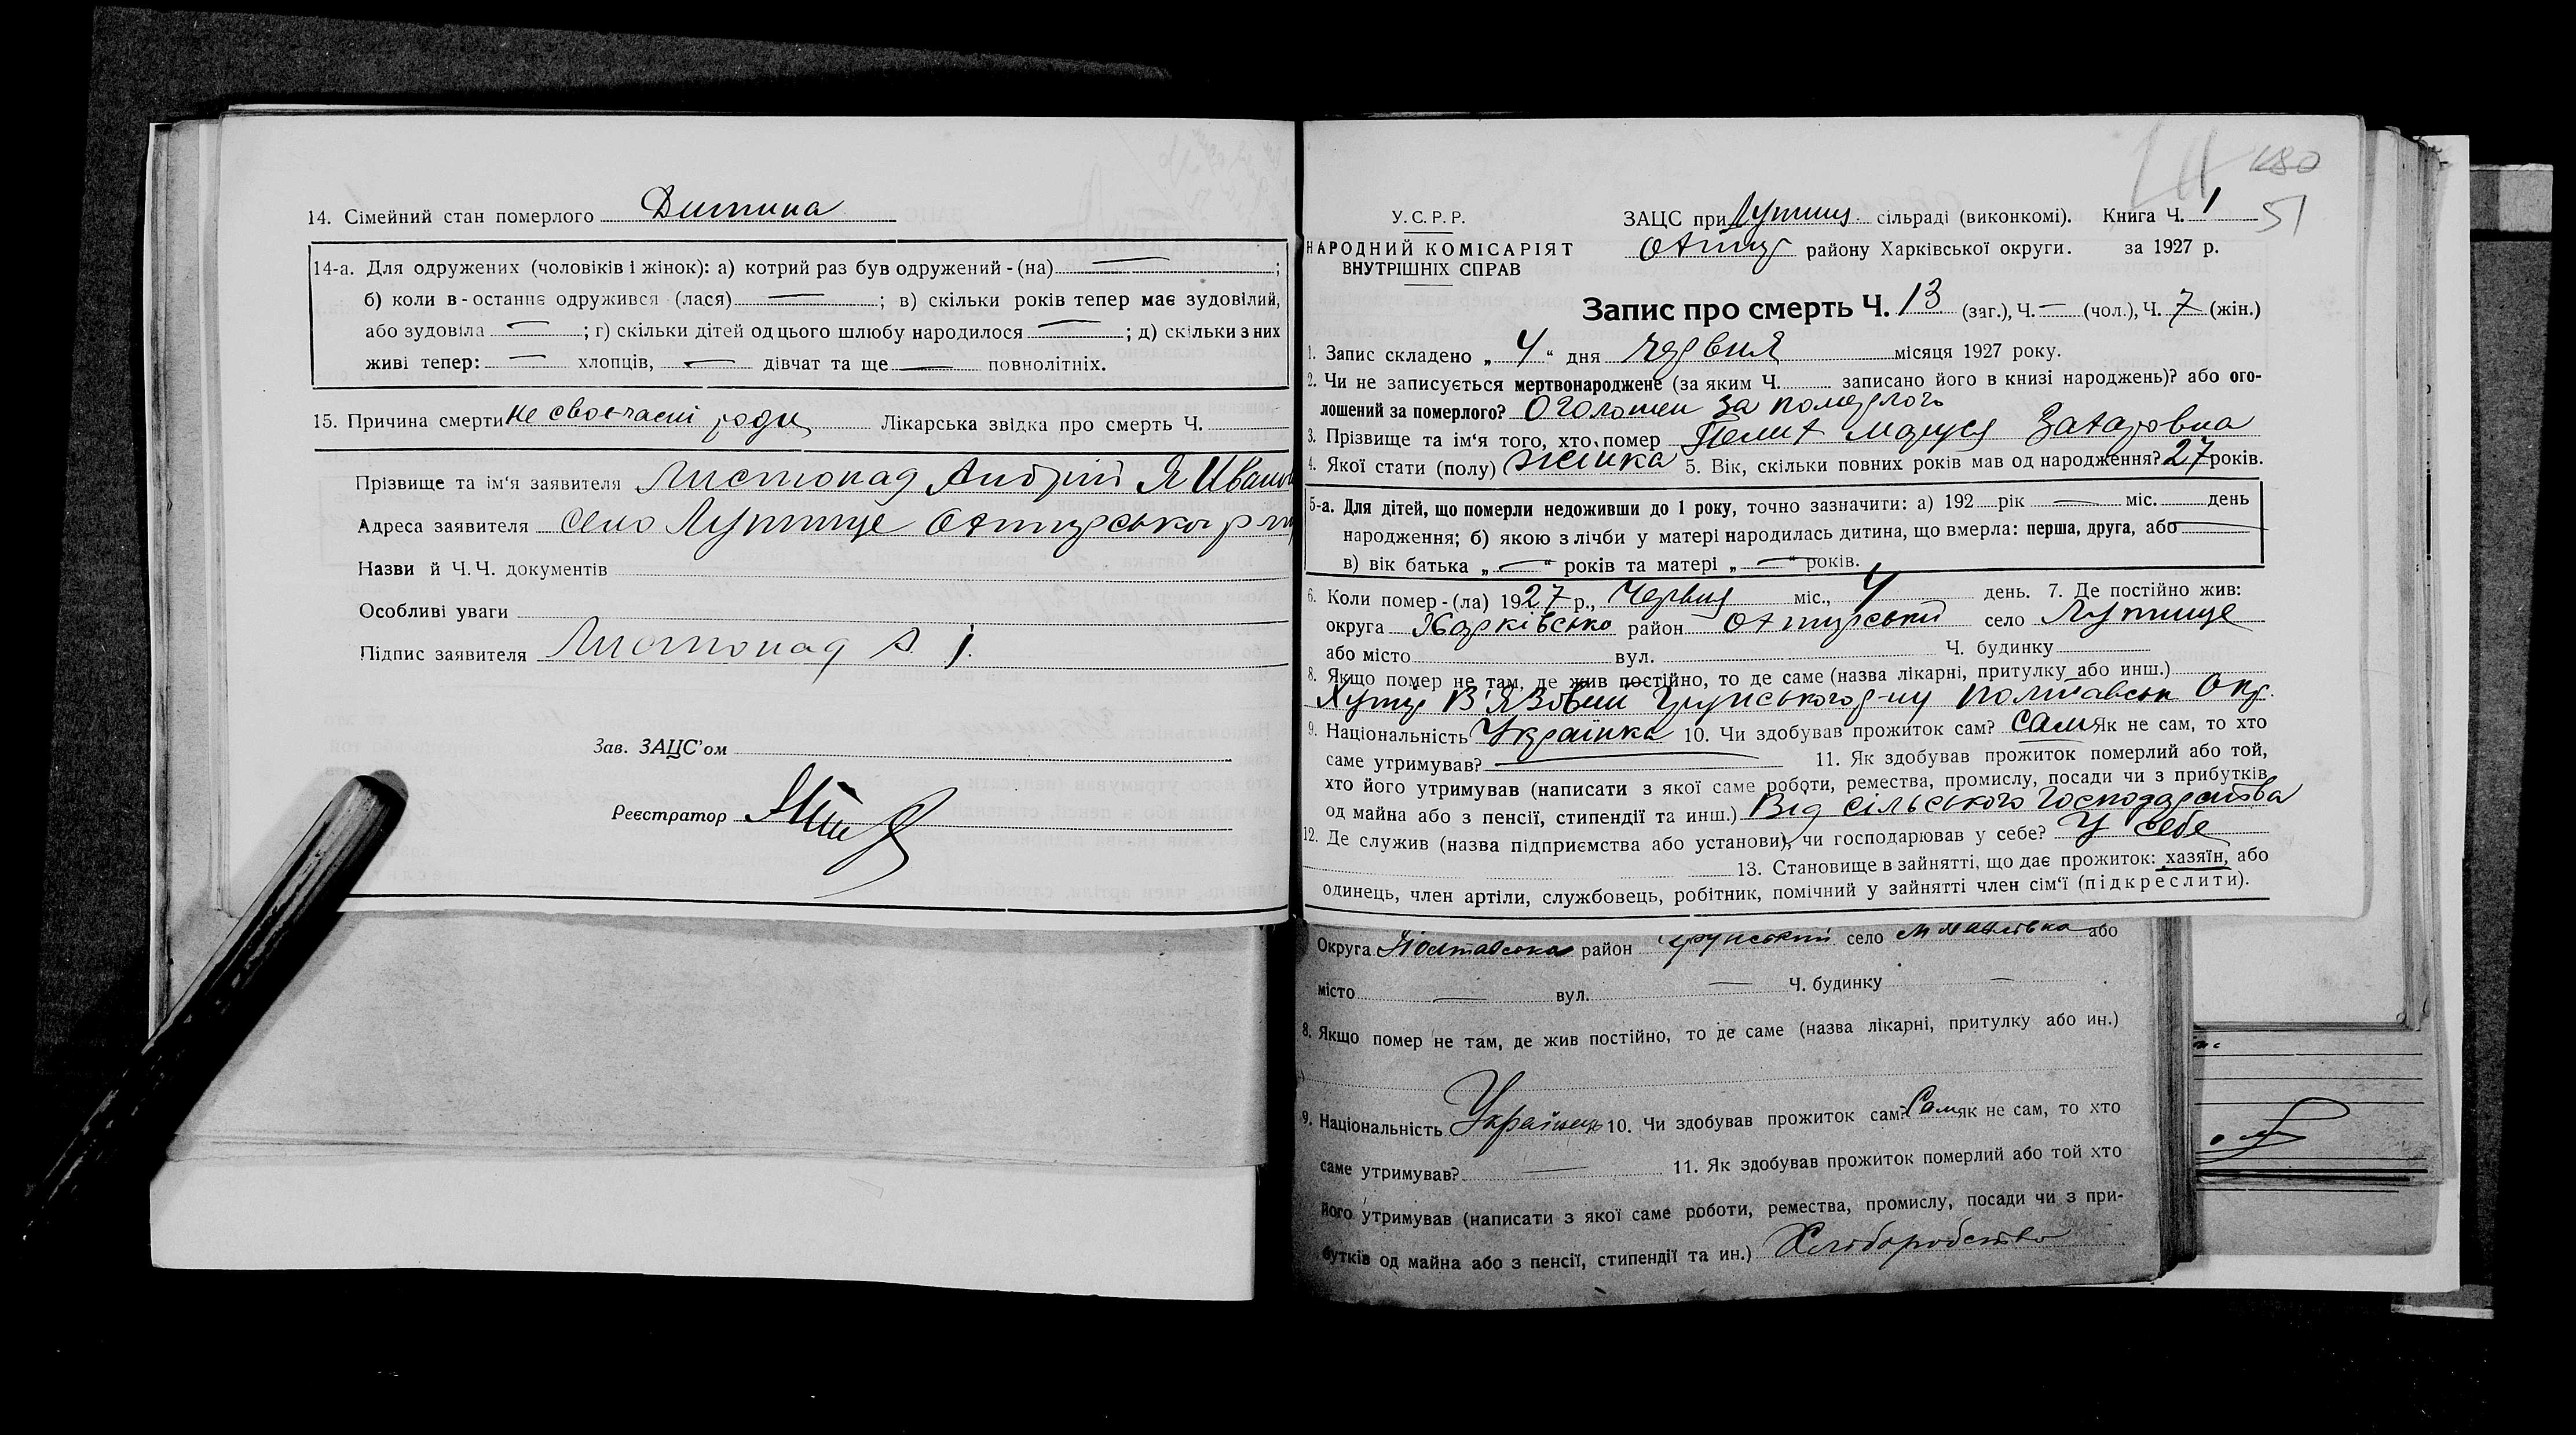 14. Сімейний стан померлого Дитина
14-а. Для одружених (чоловіків і жінок): а) котрий раз був одружений - (на) — ;
б) коли в - останнє одружився (лася) — ; в) скільки років тепер має зудовілий,
або зудовіла — ; г) скільки дітей од цього шлюбу народилося — ; д) скільки з них
живі тепер: — хлопців, — дівчат та ще — повнолітніх.
15. Причина смерти не своєчасні роди Лікарська звідка про смерть Ч.
Прізвище та ім'я заявителя Листопад Андрій Я Иванов
Адреса заявителя село Лутище Охтирсько р-ну
Назви й Ч.Ч. документів
Особливі уваги
Підпис заявителя Листопад А. І.
Зав. ЗАЦС'ом
Реєстратор
180
51
У.С.Р.Р.
НАРОДНИЙ КОМІСАРІЯТ
ВНУТРІШНІХ СПРАВ
ЗАЦС при Лутищ. сільраді (виконкомі). Книга Ч. 1
Охтир району Харківської округи. за 1927 р.
Запис про смерть Ч. 13 (заг.), Ч. — (чол.), Ч. 7 (жін.)
1. Запис складено „ 4 " дня червня місяця 1927 року.
2. Чи не записується мертвонароджене (за яким Ч. записано його в книзі народжень)? або ого-
лошений за померлого? Оголошен за померлого
3. Прізвище та ім'я того, хто помер Маруся Захаровна
4. Якої стати (полу) жінка 5. Вік, скільки повних років мав од народження? 27 років.
5-а. Для дітей, що померли недоживши до 1 року, точно зазначити: а) 192 рік — міс. день
народження; б) якою з лічби у матері народилась дитина, що вмерла: перша, друга, або —
в) вік батька „ — " років та матері „ — " років.
6. Коли помер - (ла) 1927 р., Червня міс., 4 день. 7. Де постійно жив:
округа Харківсько район Охтирський село Лутище
або місто вул. Ч. будинку
8. Якщо помер не там, де жив постійно, то де саме (назва лікарні, притулку або инш.)
Хутір В'язовий Грунського р-ну Полтавськ Окр.
9. Національність Українка 10. Чи здобував прожиток сам? Сам Як не сам, то хто
саме утримував? — 11. Як здобував прожиток померлий або той,
хто його утримував (написати з якої саме роботи, ремества, промислу, посади чи з прибутків
од майна або з пенсії, стипендії та инш.) Від сільського господарства
12. Де служив (назва підприємства або установи), чи господарював у себе? У себе
13. Становище в зайнятті, що дає прожиток: хазяїн, або
одинець, член артіли, службовець, робітник, помічний у зайнятті член сім'ї (підкреслити).
Округа Полтавська район Грунський село або
місто — вул. — Ч. будинку —
8. Якщо помер не там, де жив постійно, то де саме (назва лікарні, притулку або ин.)
9. Національність Українець 10. Чи здобував прожиток сам? Сам як не сам, то хто
саме утримував? — 11. Як здобував прожиток померлий або той хто
його утримував (написати з якої саме роботи, ремества, промислу, посади чи з при-
бутків од майна або з пенсії, стипендії та ин.) Хліборобство